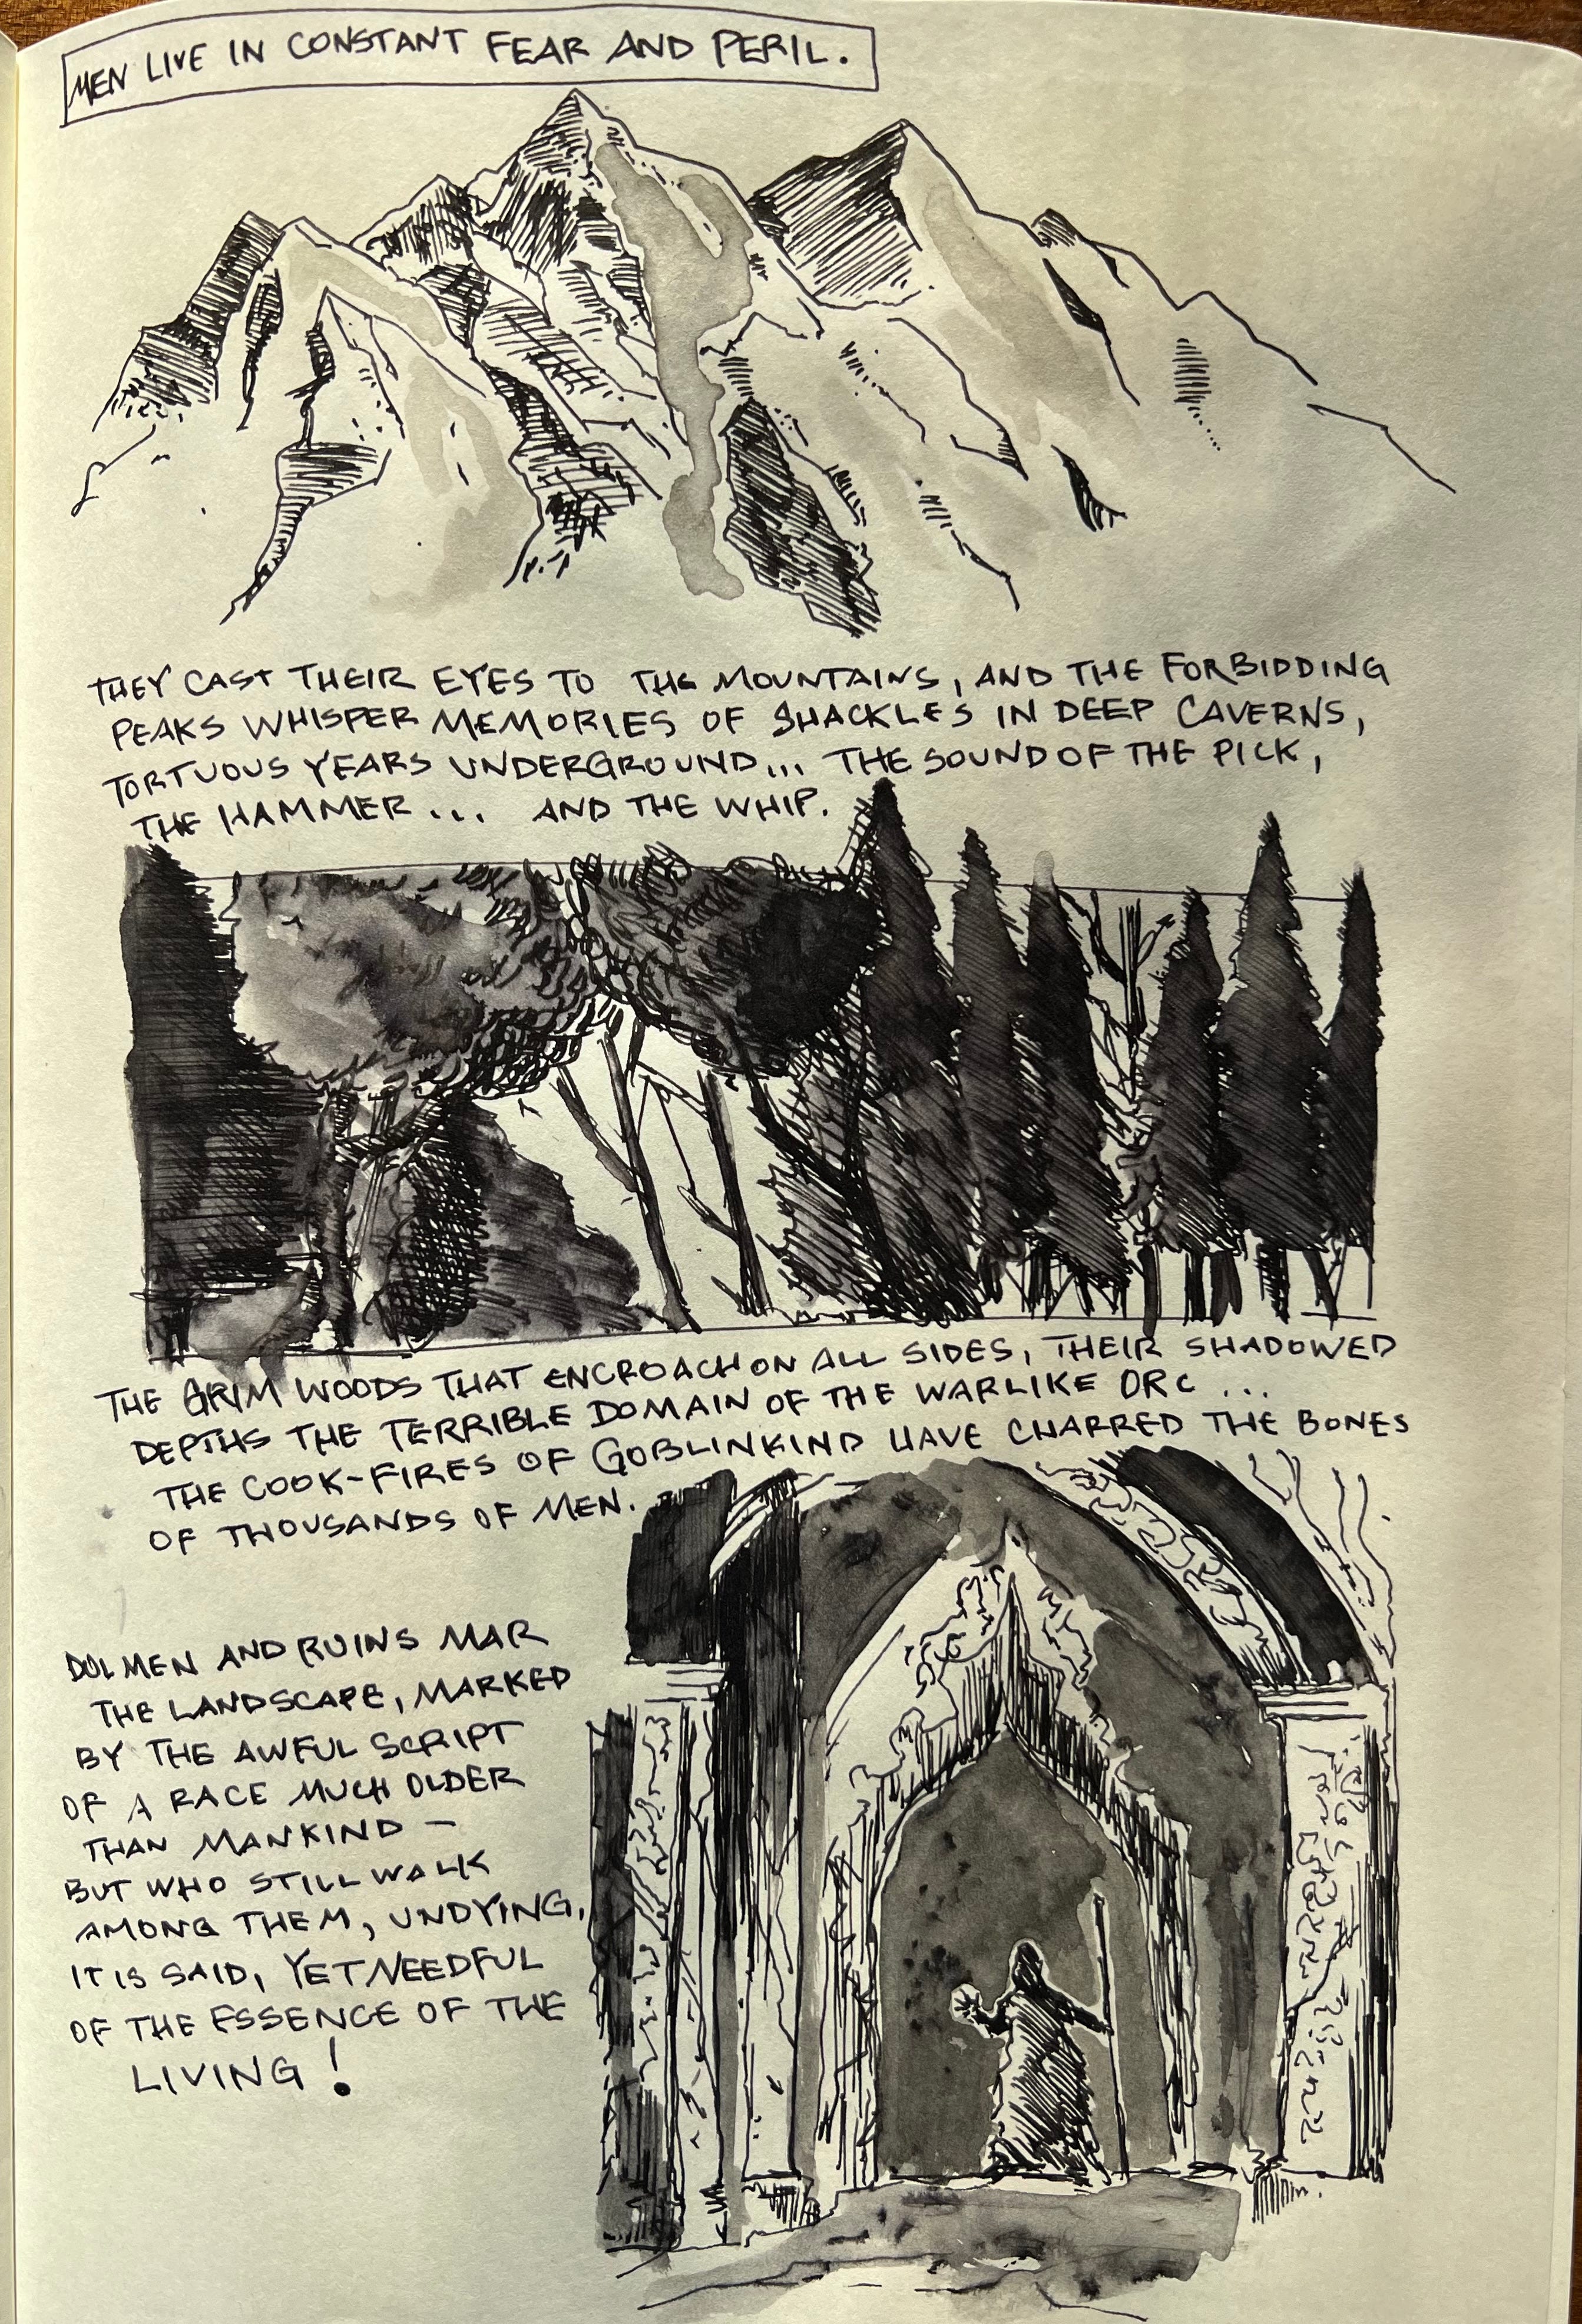 MEN LIVE IN CONSTANT FEAR AND PERIL.
THEY CAST THEIR EYES TO THE MOUNTAINS, AND THE FORBIDDING
PEAKS WHISPER MEMORIES OF SHACKLES IN DEEP CAVERNS,
TORTUOUS YEARS UNDERGROUND... THE SOUND OF THE PICK,
THE HAMMER... AND THE WHIP.
THE GRIM WOODS THAT ENCROACH ON ALL SIDES, THEIR SHADOWED
DEPTHS THE TERRIBLE DOMAIN OF THE WARLIKE ORC...
THE COOK-FIRES OF GOBLINKIND HAVE CHARRED THE BONES
OF THOUSANDS OF MEN.
DOLMEN AND RUINS MAR
THE LANDSCAPE, MARKED
BY THE AWFUL SCRIPT
OF A RACE MUCH OLDER
THAN MANKIND —
BUT WHO STILL WALK
AMONG THEM, UNDYING,
IT IS SAID, YET NEEDFUL
OF THE ESSENCE OF THE
LIVING!